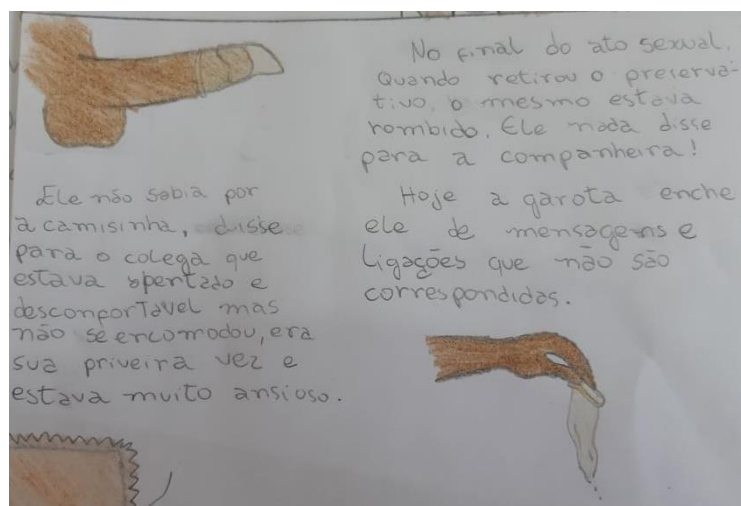 Ele não sabia por
a camisinha, disse
para o colega que
estava apertado e
desconfortavel mas
não se encomodou, era
sua priveira vez e
estava muito ansioso.
No final do ato sexual.
Quando retirou o preserva-
tivo, o mesmo estava
rombido. Ele nada disse
para a companheira!
Hoje a garota enche
ele de mensagens e
ligações que não são
correspondidas.